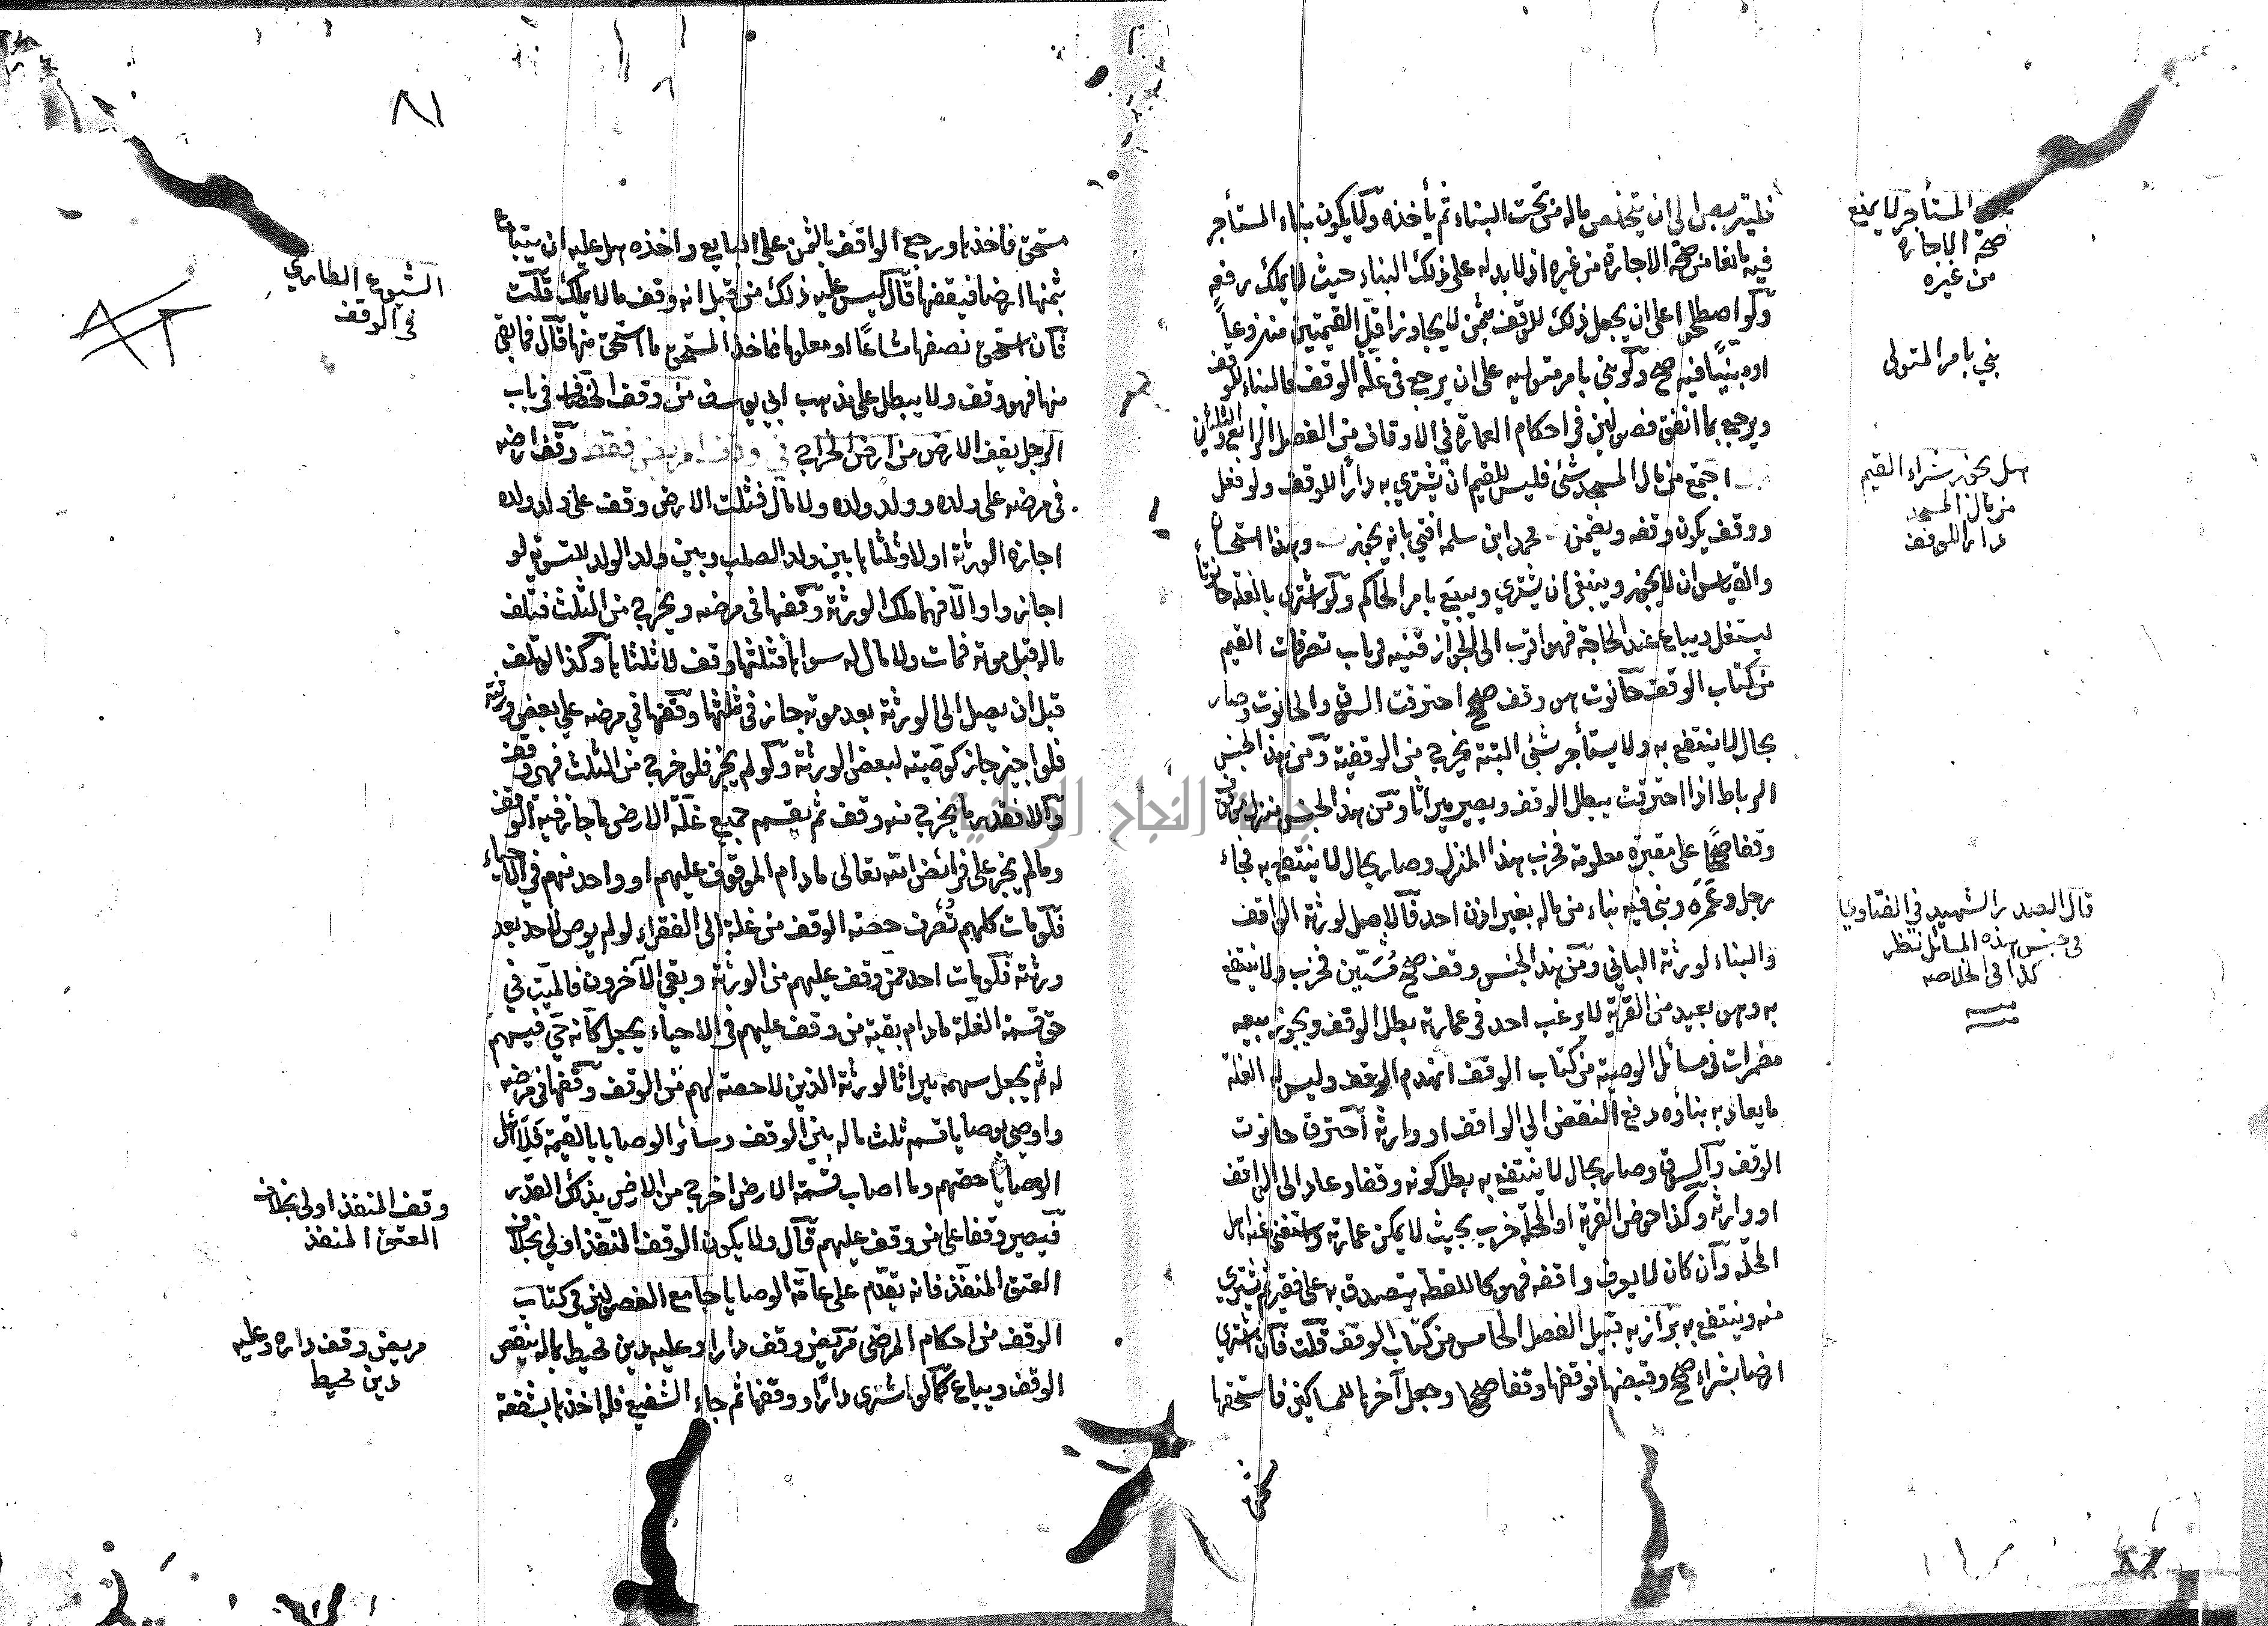 فليتربص الى ان يتخلص ماله من تحت البناء ثم يأخذه ولا يكون بناء المستأجر
فيه مانعا من صحة الاجارة من غيره اذ لا يد له على ذلك البناء حيث لا يملك رفعه
ولو اصطلحوا على ان يجعل ذلك للوقف بثمن لا يجاوز اقل القيمتين منزوعاً
او مبنيًا فيه صح ولو بنى بامر متوليه على ان يرجع في غلة الوقف فالبناء للوقف
ويرجع بما انفق فصولين في احكام العمارة في الاوقاف من الفصل الرابع والثلثين
اجتمع من مال المسجد شئ فليس للقيم ان يشتري به دارًا للوقف ولو فعل
ووقف يكون وقفه ويضمن محمد ابن سلمه افتى بانه يجوز وهذا استحسان
والقياس ان لا يجوز وينبغي ان يشتري ويبيع بامر الحاكم ولو اشترى بالغلة حانوتًا
ليستغل ويباع عند الحاجة فهو اقرب الى الجواز قنيه في باب تصرفات القيم
من كتاب الوقف حانوت هو وقف صحيح احترقت السوق والحانوت وصار
بحال لا ينتفع به ولا يستأجر بشئ البتة يخرج من الوقفية ومن هذا الجنس
الرباط اذا احترقت يبطل الوقف ويصير ميراثا ومن هذا الجنس منزل موقوف
وقفا صحيحًا على مقبرة معلومة فخرب هذا المنزل وصار بحال لا ينتفع به فجاء
رجل وعمره وبنى فيه بناء من ماله بغير اذن احد فالاصل لورثة الواقف
والبناء لورثة الباني ومن هذا الجنس وقف صحيح مُسَبّين فخرب ولا ينتفع
به وهو بعيد من القرية لا يرغب احد في عمارته بطل الوقف ويجوز بيعه
مضمرات في مسائل الوصية من كتاب الوقف انهدم الوقف وليس له الغلة
ما يعاد به بناؤه دفع النقض الى الواقف او وارثه احترق حانوت
الوقف والسوق وصار بحال لا ينتفع به بطل كونه وقفا وعاد الى الواقف
او وارثه وكذا حوض القرية او المحلة خرب بحيث لا يمكن عمارته واستغنى عنه اهل
المحلة وان كان لا يعرف واقفه فهو كاللقطة يتصدق به على فقير ثم يشتري
منه وينتفع به بزازيه قبيل الفصل الخامس من كتاب الوقف قلت فان اشترى
ارضا بشراء صحيح وقبضها فوقفها وقفا صحيحا وجعل آخرها للمساكين فاستحقها
المستأجر لا يمنع
صحة الاجارة
من غيره
بنى بامر المتولى
هل يجوز شراء القيم
من مال المسجد
دارا للوقف
قال الصدر الشهيد في الفتاوى
في جنس هذه المسائل نظر
كذا في الخلاصه
٨١
مستحق فاخذها ورجع الواقف بالثمن على البايع واخذه هل عليه ان يبتاع
بثمنها ارضا فيقفها قال ليس عليه ذلك من قبل انه وقف مالا يملك قلت
فان استحق نصفها مشاعًا او معلوما فاخذ المستحق ما استحق منها قال فما بقي
منها فهو وقف ولا يبطل على مذهب ابي يوسف من وقف الخصاف في باب
الرجل يقف الارض من ارض الخراج في وقف المريض فقط وقف ارضه
في مرضه على ولده وولد ولده ولا مال فثلث الارض وقف على ولد ولده
اجازه الورثة او لا وثلثاها بين ولد الصلب وبين ولد الولد لاتسويه لو
اجازوا والا فهما ملك الورثة وقفها في مرضه ويخرج من الثلث فتلف
ماله قبل موته فمات ولا مال له سواها فثلثها وقف لا ثلثاها وكذا لو تلف
قبل ان يصل الى الورثة بعد موته جاز في ثلثها وقفها في مرضه على بعض ورثته
فلو اجيز جاز كوصيته لبعض الورثة ولو لم يجز فلو خرج من الثلث فهو وقف
والا فقدر ما يخرج منه وقف ثم يقسم جميع غلة الارض ما جاز فيه الوقف
وما لم يجز على فرائض الله تعالى ما دام الموقوف عليهم او واحد منهم في الاحياء
فلو مات كلهم تُصرف حصة الوقف من غلة الى الفقراء لو لم يوص لاحد بعد
ورثته فلو مات احد ممن وقف عليهم من الورثة وبقي الآخرون فالميت في
حق قسمة الغلة مادام بقية من وقف عليهم في الاحياء يجعل كأنه حي فيسهم
له ثم يجعل سهمه ميراثا لورثة الذين لا حصة لهم من الوقف وقفها في مرضه
واوصى بوصايا قسم ثلث ماله بين الوقف وسائر الوصايا بالقيمة فلاهل
الوصايا حقهم وما اصاب قسمة الارض اخرج من الارض بذلك القدر
فيصير وقفا على من وقف عليهم قال ولا يكون الوقف المنفذ اولى بخلاف
العتق المنفذ فانه يقدم على عامة الوصايا جامع الفصولين في كتاب
الوقف من احكام المرضى مريض وقف دارا وعليه دين محيط بماله ينقض
الوقف ويباع كما لو اشترى دارًا ووقفها ثم جاء الشفيع فله اخذ بالشفعة
الشيوع الطاري
في الوقف
وقف المنفذ اولى بخلاف
العتق المنفذ
مريض وقف داره وعليه
دين محيط
جامعة النجاح الوطنية